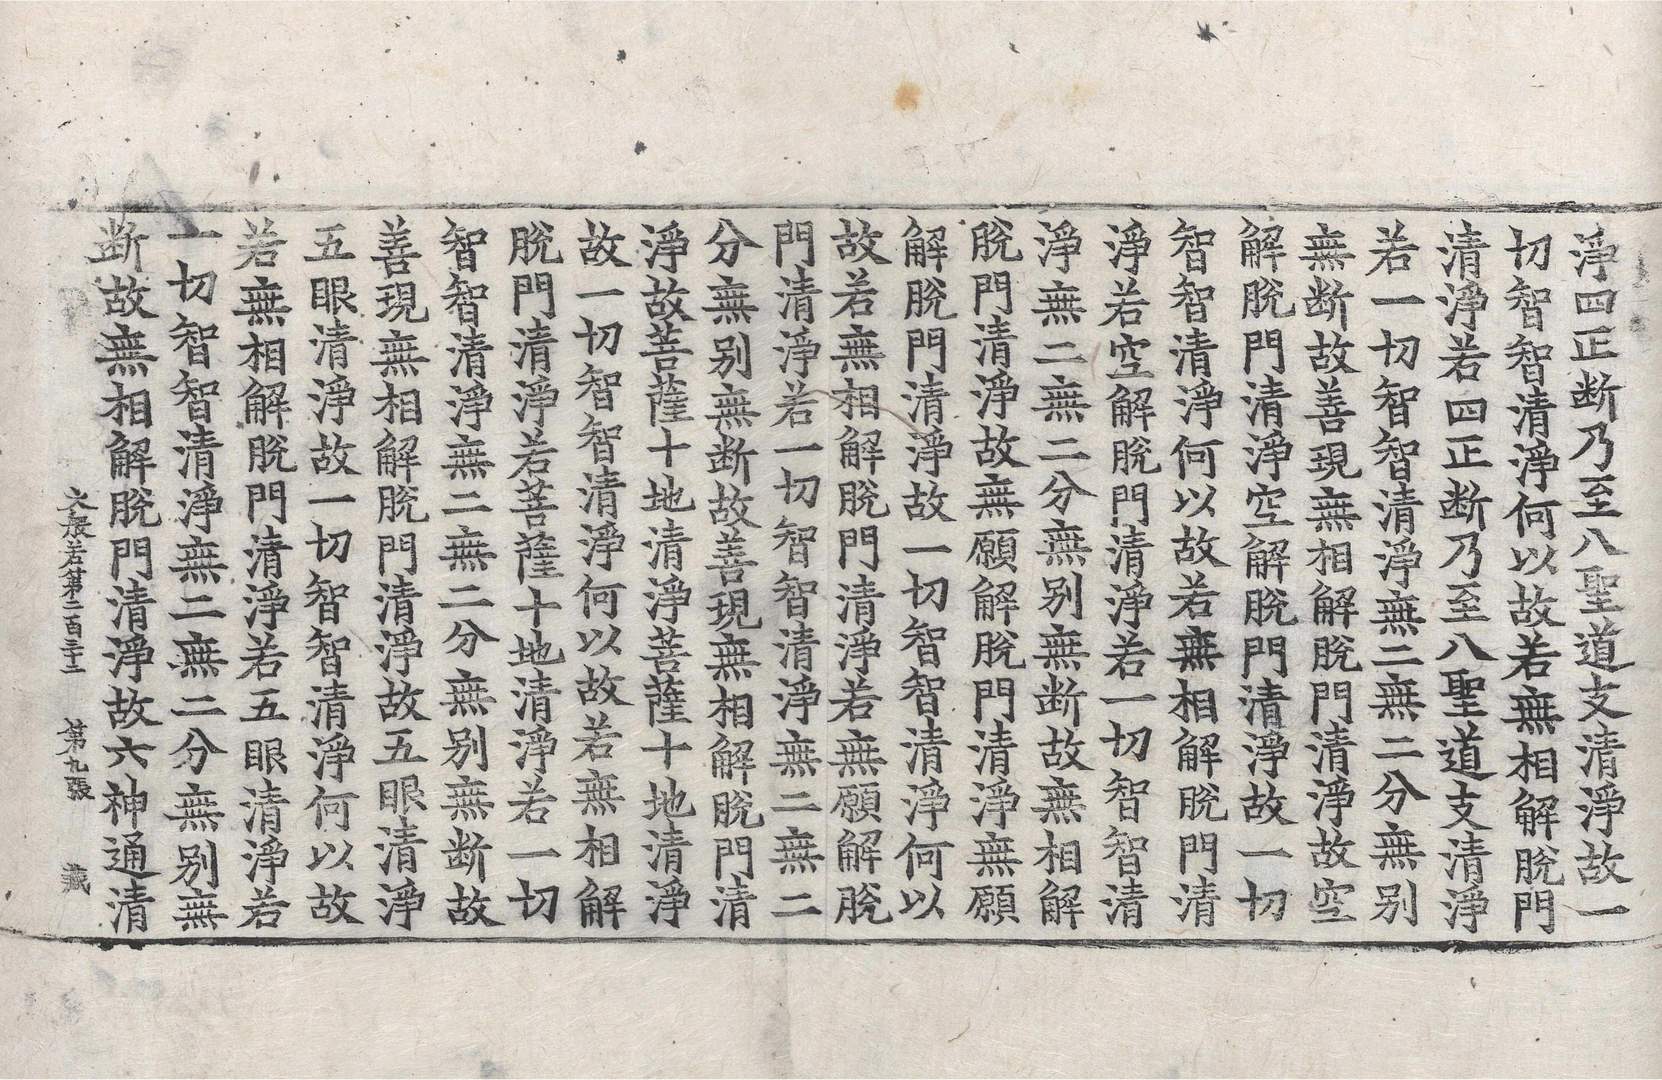 淨四正断乃至八聖道支清淨故一
切智智清淨何以故若無相解脫門
清淨若四正断乃至八聖道支清淨
若一切智智清淨無二無二分無別
無断故善現無相解脫門清淨故空
解脫門清淨空解脫門清淨故一切
智智清淨何以故若無相解脫門清
淨若空解脫門清淨若一切智智清
淨無二無二分無別無断故無相解
脫門清淨故無願解脫門清淨無願
解脫門清淨故一切智智清淨何以
故若無相解脫門清淨若無願解脫
門清淨若一切智智清淨無二無二
分無別無断故善現無相解脫門清
淨故菩薩十地清淨菩薩十地清淨
故一切智智清淨何以故若無相解
脫門清淨若菩薩十地清淨若一切
智智清淨無二無二分無別無断故
善現無相解脫門清淨故五眼清淨
五眼清淨故一切智智清淨何以故
若無相解脫門清淨若五眼清淨若
一切智智清淨無二無二分無別無
断故無相解脫門清淨故六神通清
大般若第二百三十二 第九張 藏